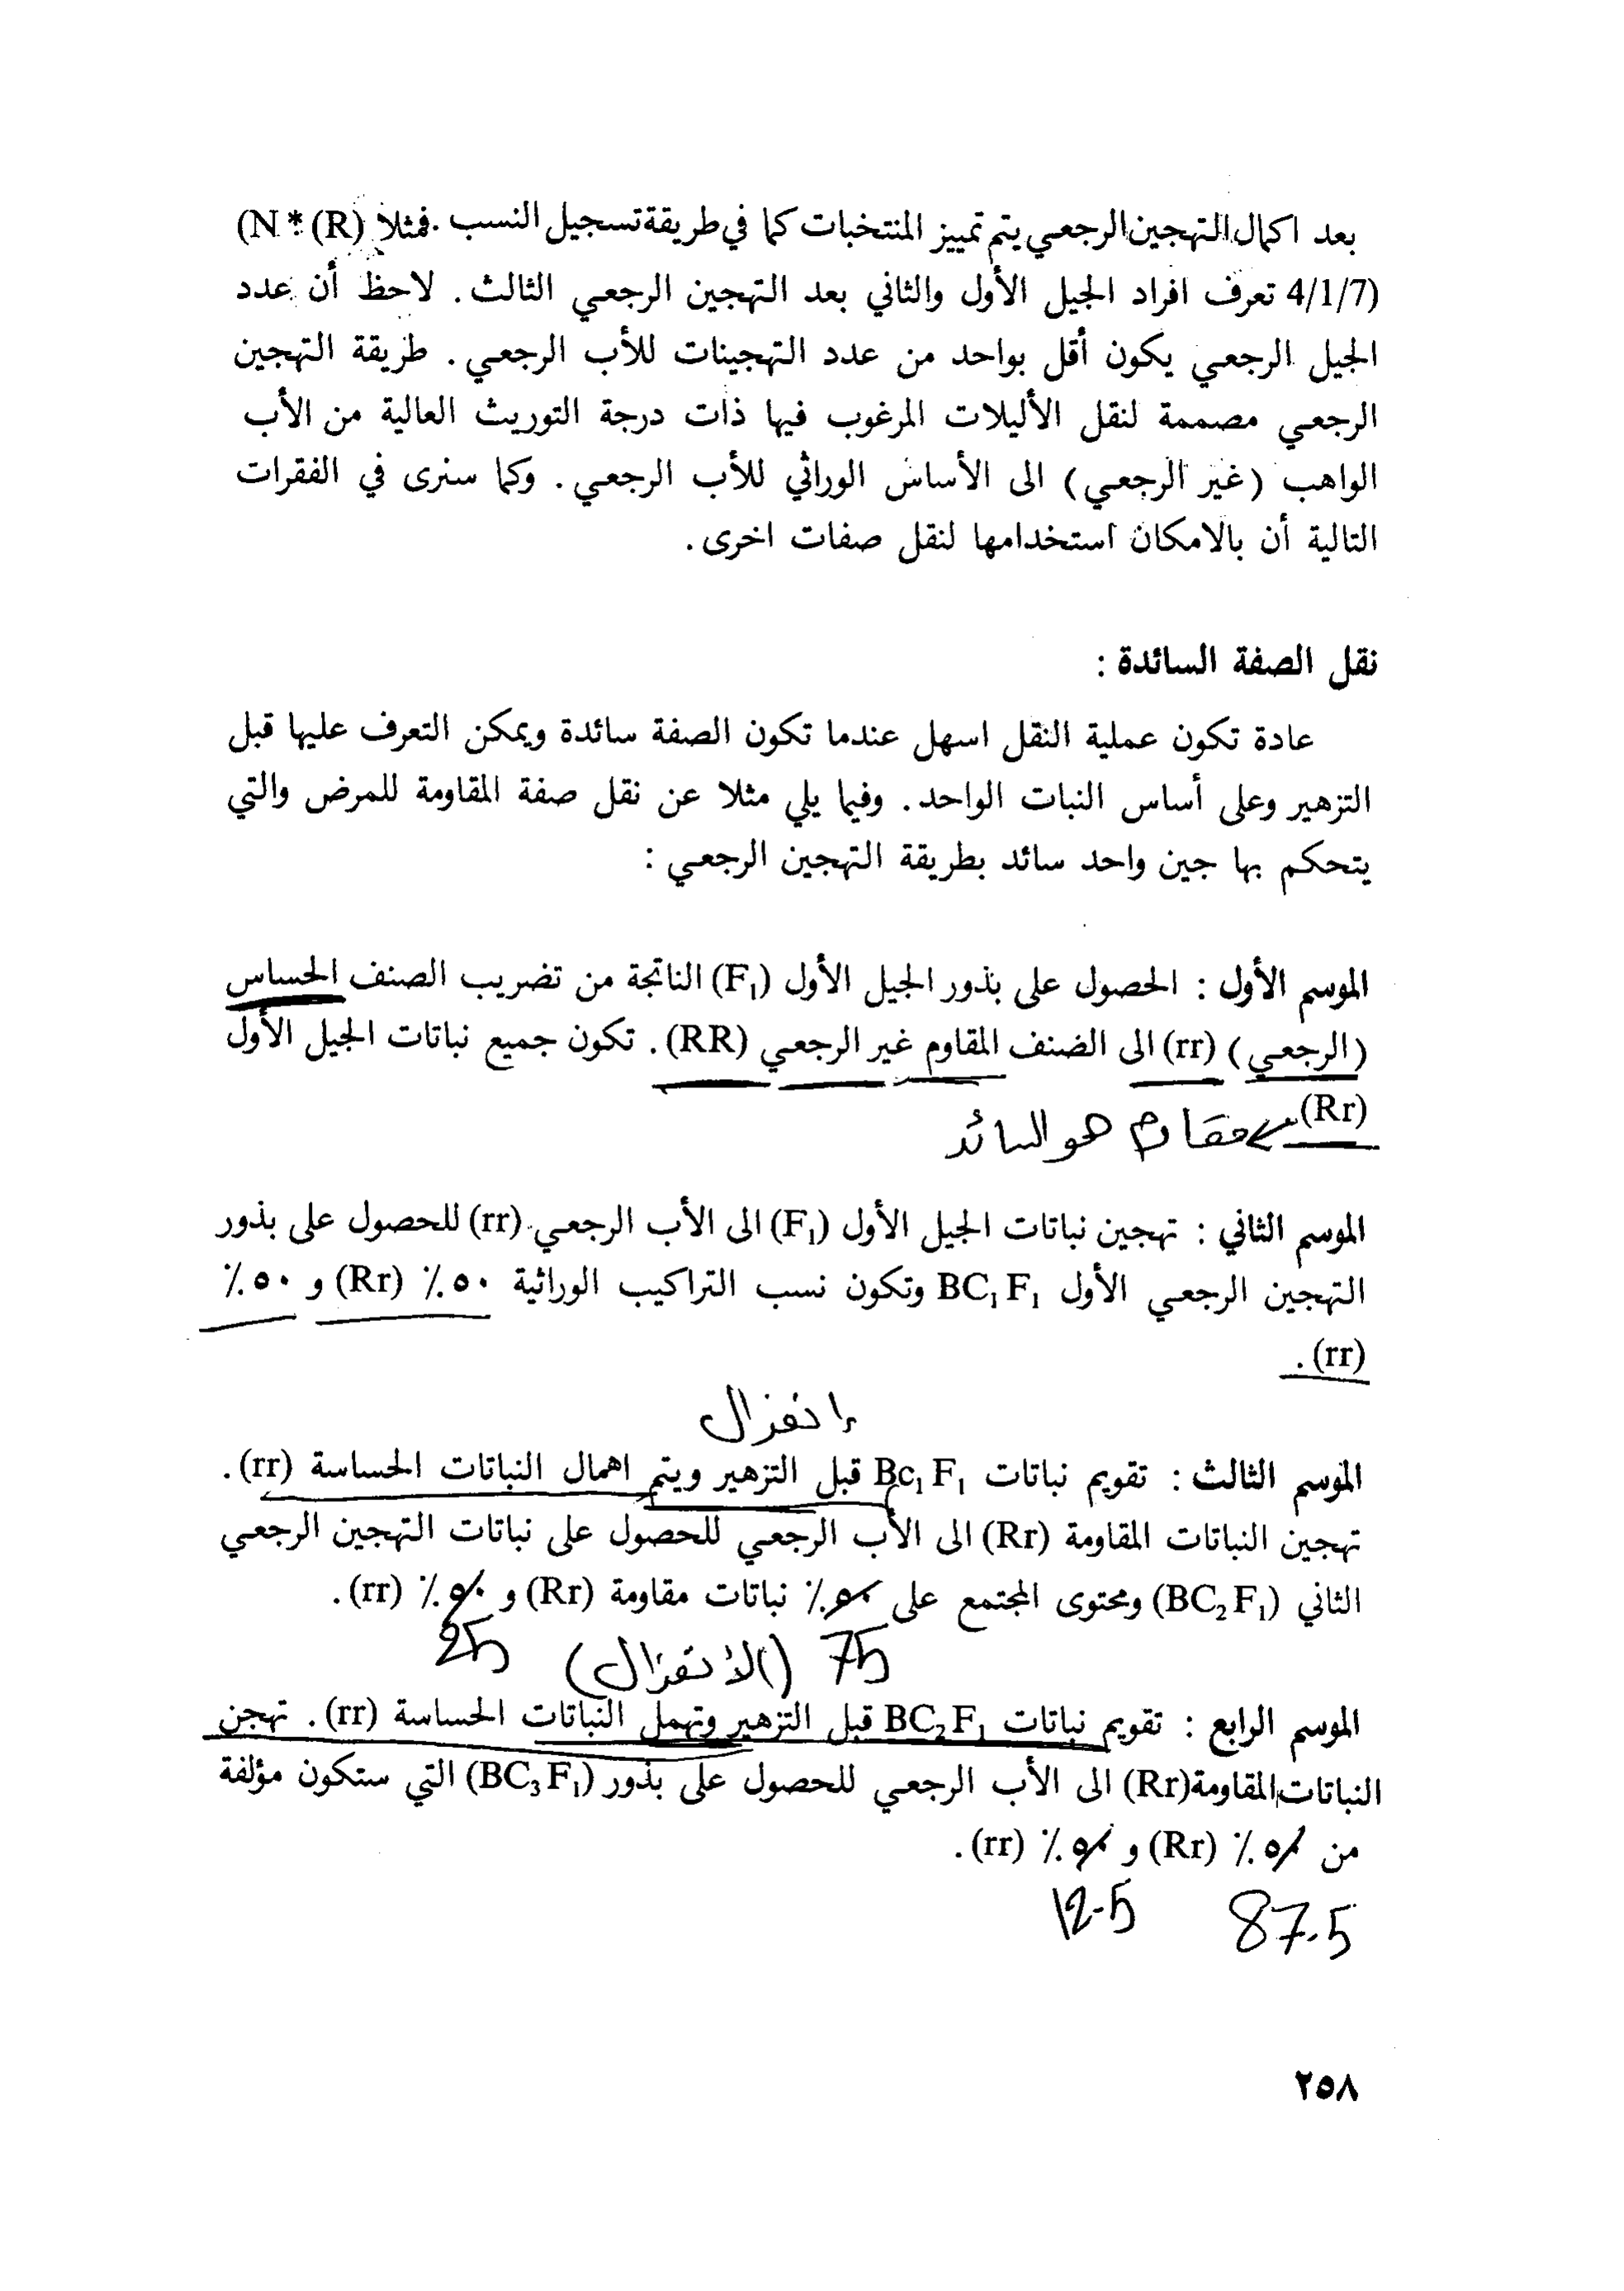 بعد اكمال التهجين الرجعي يتم تمييز المنتخبات كما في طريقة تسجيل النسب . فمثلا (N * (R)
4/1/7) تعرف افراد الجيل الأول والثاني بعد التهجين الرجعي الثالث . لاحظ أن عدد
الجيل الرجعي يكون أقل بواحد من عدد التهجينات للأب الرجعي . طريقة التهجين
الرجعي مصممة لنقل الأليلات المرغوب فيها ذات درجة التوريث العالية من الأب
الواهب (غير الرجعي) الى الأساس الوراثي للأب الرجعي . وكما سنرى في الفقرات
التالية أن بالامكان استخدامها لنقل صفات اخرى .
نقل الصفة السائدة :
عادة تكون عملية النقل اسهل عندما تكون الصفة سائدة ويمكن التعرف عليها قبل
التزهير وعلى أساس النبات الواحد . وفيما يلي مثلا عن نقل صفة المقاومة للمرض والتي
يتحكم بها جين واحد سائد بطريقة التهجين الرجعي :
الموسم الأول : الحصول على بذور الجيل الأول (F₁) الناتجة من تضريب الصنف الحساس
(الرجعي) (rr) الى الضنف المقاوم غير الرجعي (RR) . تكون جميع نباتات الجيل الأول
(Rr)
مقاوم هو السائد
الموسم الثاني : تهجين نباتات الجيل الأول (F₁) الى الأب الرجعي (rr) للحصول على بذور
التهجين الرجعي الأول BC₁F₁ وتكون نسب التراكيب الوراثية ٥٠٪ (Rr) و ٥٠٪
(rr) .
إنعزال
الموسم الثالث : تقويم نباتات Bc₁F₁ قبل التزهير ويتم اهمال النباتات الحساسة (rr) .
تهجين النباتات المقاومة (Rr) الى الأب الرجعي للحصول على نباتات التهجين الرجعي
الثاني (BC₂F₁) ومحتوى المجتمع على ٥٠٪ نباتات مقاومة (Rr) و ٥٠٪ (rr) .
75 (الانعزال) 25
الموسم الرابع : تقويم نباتات BC₂F₁ قبل التزهير وتهمل النباتات الحساسة (rr) . تهجن
النباتات المقاومة (Rr) الى الأب الرجعي للحصول على بذور (BC₃F₁) التي ستكون مؤلفة
من ٥٠٪ (Rr) و ٥٠٪ (rr) .
87.5 12.5
٢٥٨